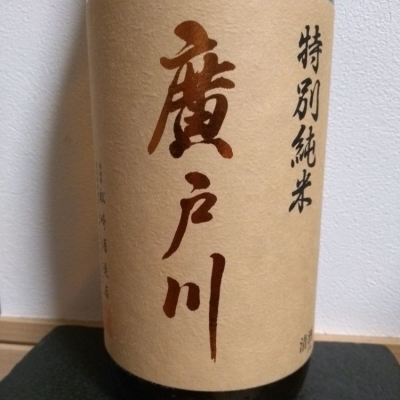 特別純米
廣戸川
清